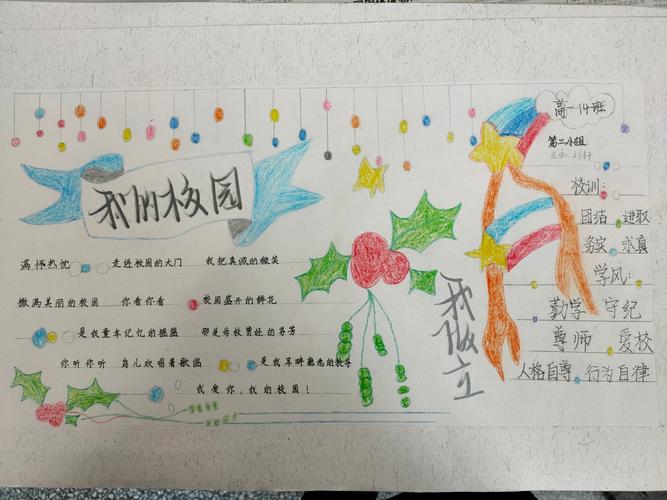 高一14班
第二小组
我的校园
校训:
团结 进取
务实 求真
学风:
勤学 守纪
尊师 爱校
人格自尊 行为自律
满怀热忱 走进校园的大门 我把真诚的微笑
撒满美丽的校园 你看你看 校园盛开的鲜花
是我童年记忆的摇篮 那是母校曾经的芬芳
你听你听 鸟儿欢唱着歌谣 是我耳畔
我爱你,我的校园!